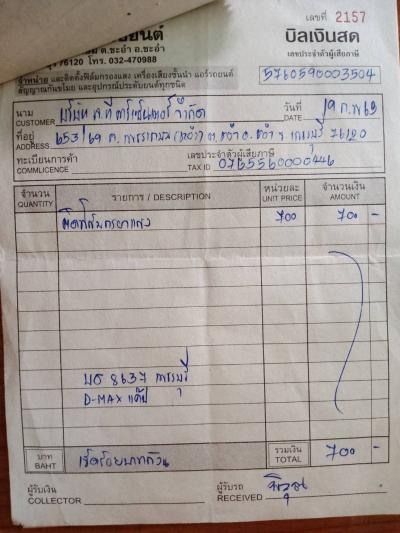 เลขที่ 2157
ยนต์ บิลเงินสด
ต.ชะอำ อ.ชะอำ เลขประจำตัวผู้เสียภาษี
76120 โทร. 032-470988
จำหน่าย และติดตั้งฟิล์มกรองแสง เครื่องเสียงชั้นนำ แอร์รถยนต์ 5760590003504
สัญญาณกันขโมย และอุปกรณ์ประดับยนต์ทุกชนิด
นาม วันที่ 19 ก.พ 63
CUSTOMER บริษัท จำกัด DATE
ที่อยู่
ADDRESS 653/69 ถ. ต. ชะอำ อ. ชะอำ จ. เพชรบุรี 76120
ทะเบียนการค้า เลขประจำตัวผู้เสียภาษี
COMMLICENCE TAX ID 0765560000446
จำนวน รายการ / DESCRIPTION หน่วยละ จำนวนเงิน
QUANTITY UNIT PRICE AMOUNT
ติดฟิล์มกรองแสง 700 700 -
8637 เพชรบุรี
D-MAX แค๊ป
บาท เจ็ดร้อยบาทถ้วน รวมเงิน 700 -
BAHT TOTAL
ผู้รับเงิน ผู้รับรถ
COLLECTOR RECEIVED